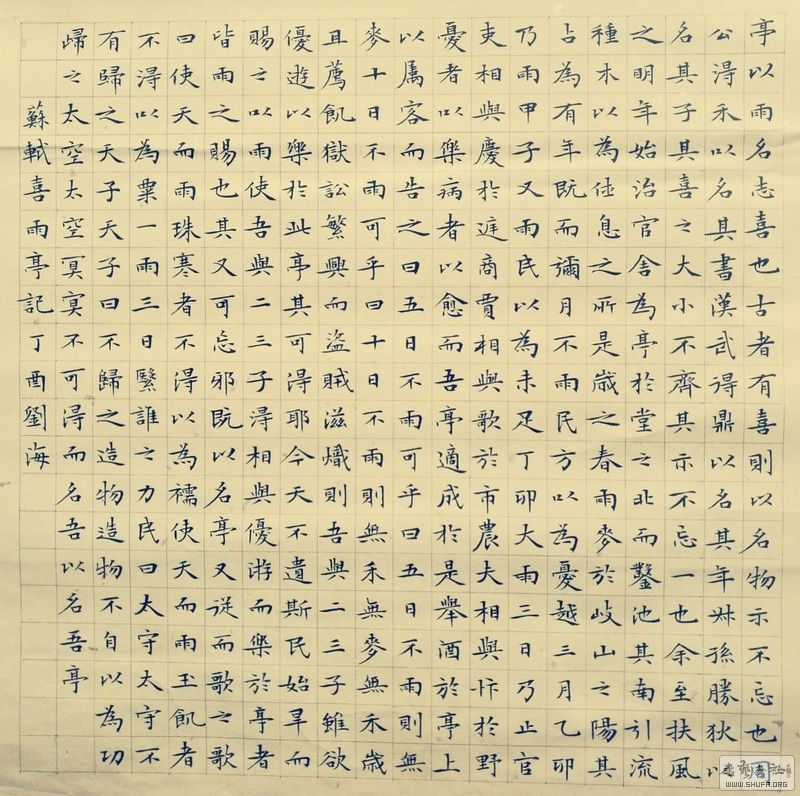 亭以雨名志喜也古者有喜則以名物示不忘也周
公得禾以名其書漢武得鼎以名其年叔孫勝狄以
名其子其喜之大小不齊其示不忘一也余至扶風
之明年始治官舍為亭於堂之北而鑿池其南引流
種木以為休息之所是歲之春雨麥於岐山之陽其
占為有年既而彌月不雨民方以為憂越三月乙卯
乃雨甲子又雨民以為未足丁卯大雨三日乃止官
吏相與慶於庭商賈相與歌於市農夫相與忭於野
憂者以樂病者以愈而吾亭適成於是舉酒於亭上
以属客而告之曰五日不雨可乎曰五日不雨則無
麥十日不雨可乎曰十日不雨則無禾無麥無禾歲
且薦飢獄訟繁興而盜賊滋熾則吾與二三子雖欲
優遊以樂於此亭其可得耶今天不遺斯民始旱而
賜之以雨使吾與二三子得相與優游而樂於亭者
皆雨之賜也其又可忘邪既以名亭又從而歌之歌
曰使天而雨珠寒者不得以為襦使天而雨玉飢者
不得以為粟一雨三日繄誰之力民曰太守太守不
有歸之天子天子曰不歸之造物造物不自以為功
歸之太空太空冥冥不可得而名吾以名吾亭
蘇軾喜雨亭記丁酉劉海
WWW.SHUFA.ORG